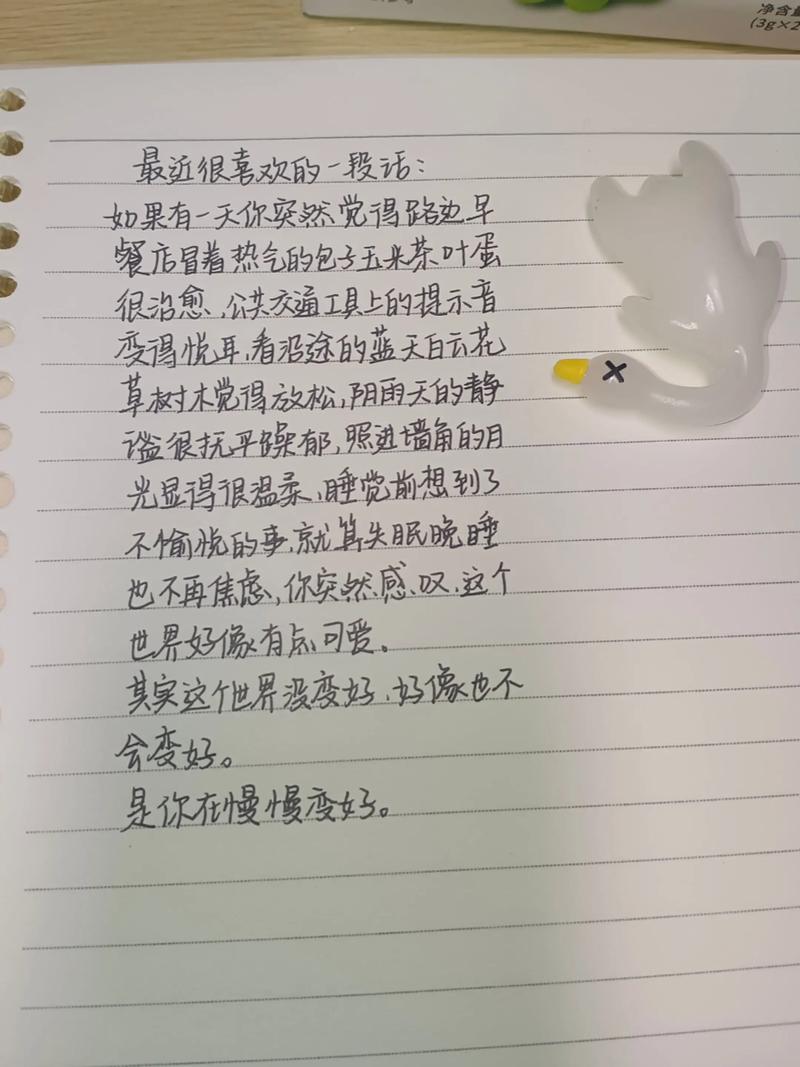 净含量
(3g×2
最近很喜欢的一段话：
如果有一天你突然觉得路边早
餐店冒着热气的包子玉米茶叶蛋
很治愈，公共交通工具上的提示音
变得悦耳，看沿途的蓝天白云花
草树木觉得放松，阴雨天的静
谧很抚平躁郁，照进墙角的月
光显得很温柔，睡觉前想到了
不愉悦的事，就算失眠晚睡
也不再焦虑，你突然感叹，这个
世界好像有点可爱。
其实这个世界没变好，好像也不
会变好。
是你在慢慢变好。